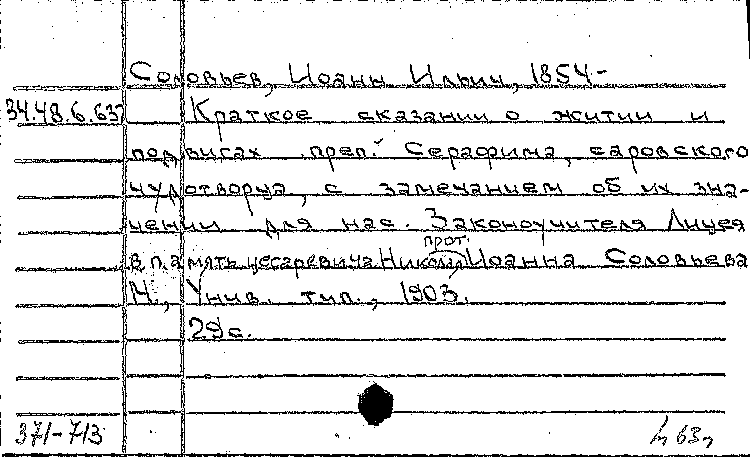 Соловьев, Иоанн Ильич, 1854-
34.48.6.637 Краткое сказании о житии и
подвигах преп. Серафима, саровского
чудотворца, с замечанием об их зна-
чении для нас. Законоучителя Лицея
в память цесаревича Николая прот. Иоанна Соловьева
М., Унив. тип., 1903.
29с.
371-713